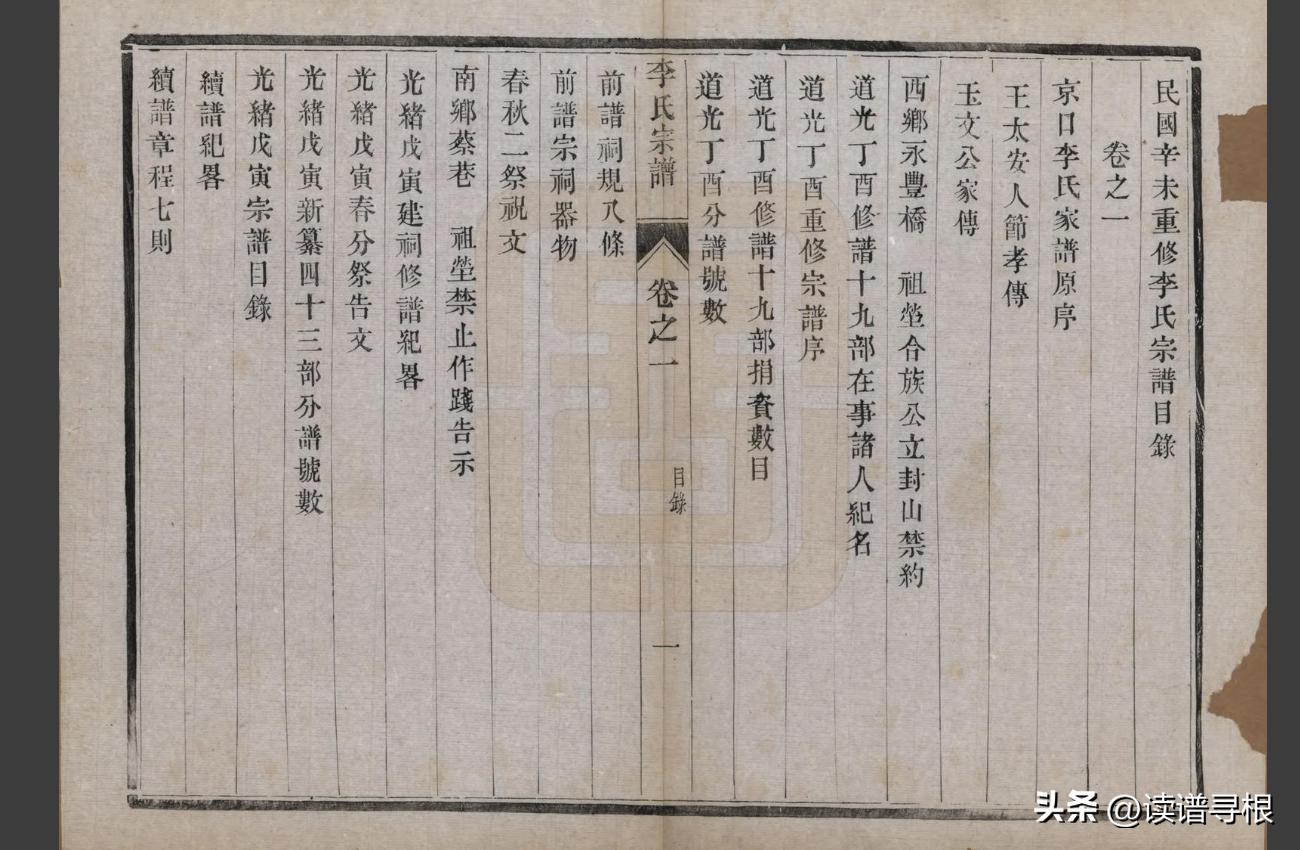 民國辛未重修李氏宗譜目錄
卷之一
京口李氏家譜原序
王太安人節孝傳
玉文公家傳
西鄉永豐橋　祖塋合族公立封山禁約
道光丁酉修譜十九部在事諸人紀名
道光丁酉重修宗譜序
道光丁酉修譜十九部捐資數目
道光丁酉分譜號數
李氏宗譜
卷之一
目錄
一
前譜祠規八條
前譜宗祠器物
春秋二祭祝文
南鄉蔡巷　祖塋禁止作踐告示
光緒戊寅建祠修譜紀畧
光緒戊寅春分祭告文
光緒戊寅新纂四十三部分譜號數
光緒戊寅宗譜目錄
續譜紀畧
續譜章程七則
头条 @读谱寻根